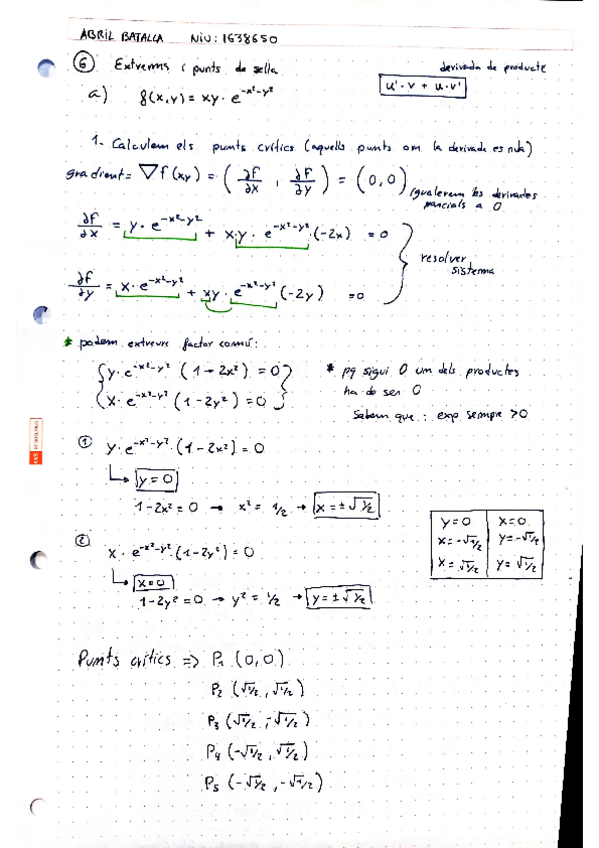 ABRIL BATALLA NIU: 1638650
⑥ Extrems i punts de sella
derivada de producte
a) f(x,y) = xy · e^{-x²-y²}
u'·v + u·v'
1- Calculem els punts crítics (aquells punts om la derivada es nula)
gradient = ∇f(xy) = (∂F/∂x , ∂F/∂y) = (0,0)
igualarem les derivades
parcials a 0
∂F/∂x = y · e^{-x²-y²} + x·y · e^{-x²-y²} · (-2x) = 0
resolver
sistema
∂F/∂y = x · e^{-x²-y²} + xy · e^{-x²-y²} (-2y) = 0
* podem extreure factor comú:
y · e^{-x²-y²} (1 - 2x²) = 0
x · e^{-x²-y²} (1 - 2y²) = 0
* pq sigui 0 um dels productes
ha de ser 0
Sabem que : exp sempre >0
① y · e^{-x²-y²} · (1 - 2x²) = 0
↳ y = 0
1 - 2x² = 0 → x² = 1/2 → x = ±√1/2
② x · e^{-x²-y²} · (1 - 2y²) = 0
↳ x = 0
1 - 2y² = 0 → y² = 1/2 → y = ±√1/2
y = 0 x = 0
x = -√1/2 y = -√1/2
x = √1/2 y = √1/2
Punts crítics => P₁ (0,0)
P₂ (√1/2, √1/2)
P₃ (√1/2, -√1/2)
P₄ (-√1/2, √1/2)
P₅ (-√1/2, -√1/2)